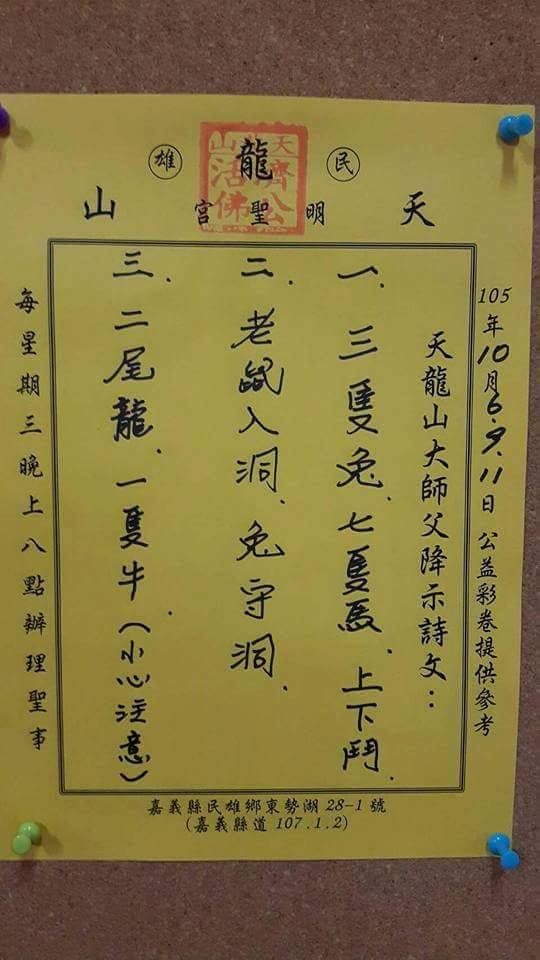 民雄
天龍山
明聖宮
濟公
活佛
105年10月6.9.11日 公益彩卷提供參考
天龍山大師父降示詩文：
一、三隻兔、七隻馬、上下鬥、
二、老鼠入洞、兔守洞、
三、二尾龍、一隻牛、(小心注意)
每星期三晚上八點辦理聖事
嘉義縣民雄鄉東勢湖28-1號
(嘉義縣道107.1.2)